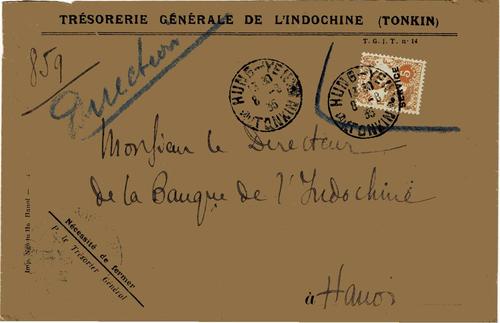 TRÉSORERIE GÉNÉRALE DE L'INDOCHINE (TONKIN)
T. G. I. T. n° 14
859
Directeur
HUNG-YEN
TONKIN
HUNG-YEN
TONKIN
SERVICE
Monsieur le Directeur
de la Banque de l'Indochine
à Hanoi
Nécessité de fermer
P. le Trésorier Général